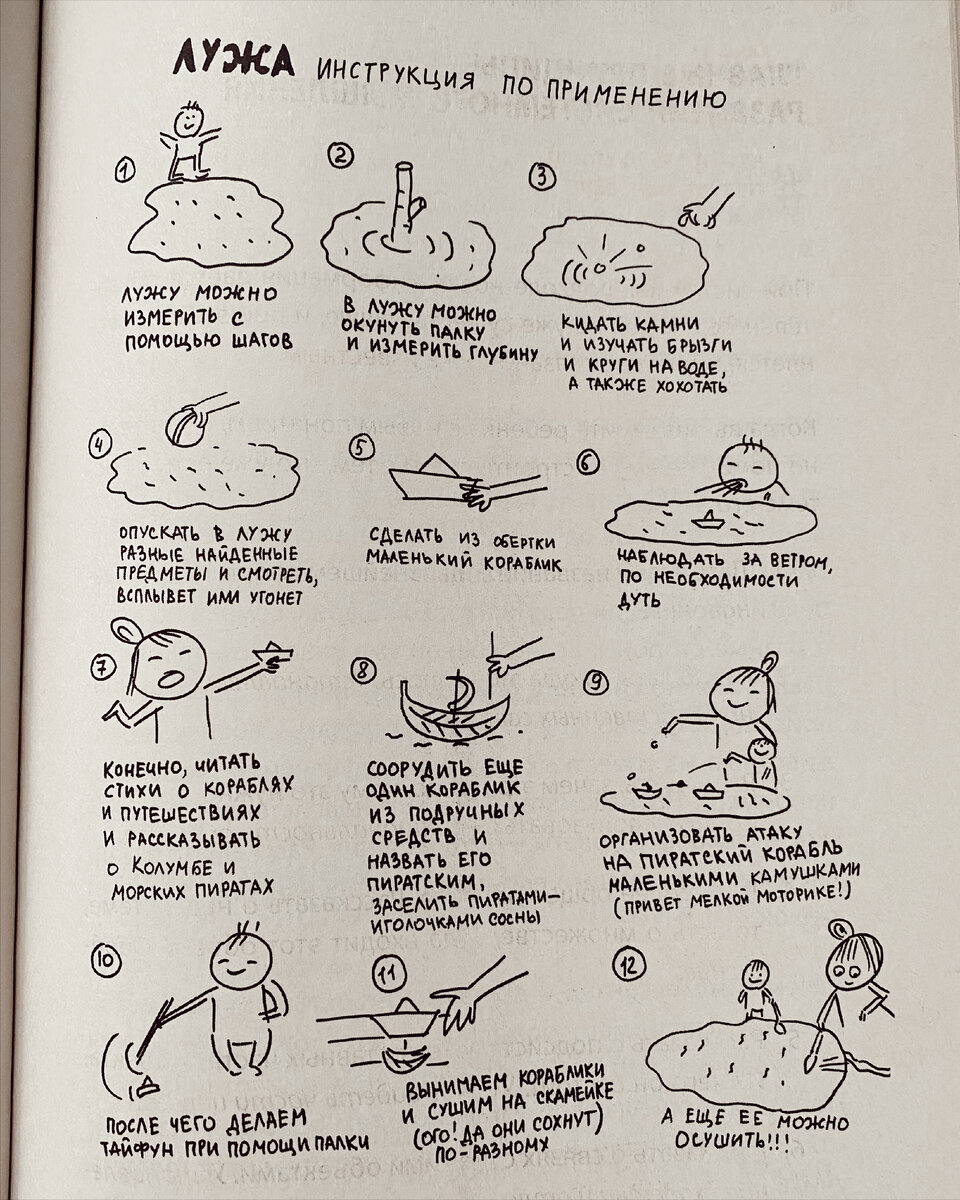 ЛУЖА ИНСТРУКЦИЯ ПО ПРИМЕНЕНИЮ
1
ЛУЖУ МОЖНО
ИЗМЕРИТЬ С
ПОМОЩЬЮ ШАГОВ
2
В ЛУЖУ МОЖНО
ОКУНУТЬ ПАЛКУ
И ИЗМЕРИТЬ ГЛУБИНУ
3
КИДАТЬ КАМНИ
И ИЗУЧАТЬ БРЫЗГИ
И КРУГИ НА ВОДЕ,
А ТАКЖЕ ХОХОТАТЬ
4
ОПУСКАТЬ В ЛУЖУ
РАЗНЫЕ НАЙДЕННЫЕ
ПРЕДМЕТЫ И СМОТРЕТЬ,
ВСПЛЫВЕТ ИЛИ УТОНЕТ
5
СДЕЛАТЬ ИЗ ОБЕРТКИ
МАЛЕНЬКИЙ КОРАБЛИК
6
НАБЛЮДАТЬ ЗА ВЕТРОМ,
ПО НЕОБХОДИМОСТИ
ДУТЬ
7
КОНЕЧНО, ЧИТАТЬ
СТИХИ О КОРАБЛЯХ
И ПУТЕШЕСТВИЯХ
И РАССКАЗЫВАТЬ
О КОЛУМБЕ И
МОРСКИХ ПИРАТАХ
8
СООРУДИТЬ ЕЩЕ
ОДИН КОРАБЛИК
ИЗ ПОДРУЧНЫХ
СРЕДСТВ И
НАЗВАТЬ ЕГО
ПИРАТСКИМ,
ЗАСЕЛИТЬ ПИРАТАМИ-
ИГОЛОЧКАМИ СОСНЫ
9
ОРГАНИЗОВАТЬ АТАКУ
НА ПИРАТСКИЙ КОРАБЛЬ
МАЛЕНЬКИМИ КАМУШКАМИ
(ПРИВЕТ МЕЛКОЙ МОТОРИКЕ!)
10
ПОСЛЕ ЧЕГО ДЕЛАЕМ
ТАЙФУН ПРИ ПОМОЩИ ПАЛКИ
11
ВЫНИМАЕМ КОРАБЛИКИ
И СУШИМ НА СКАМЕЙКЕ
(ОГО! ДА ОНИ СОХНУТ)
ПО-РАЗНОМУ
12
А ЕЩЕ ЕЕ МОЖНО
ОСУШИТЬ!!!